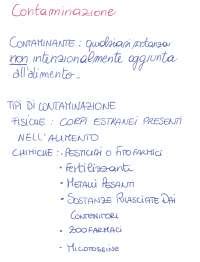 Contaminazione
CONTAMINANTE: qualsiasi sostanza
non intenzionalmente aggiunta
all'alimento.
TIPI DI CONTAMINAZIONE
FISICHE: CORPI ESTRANEI PRESENTI
NELL'ALIMENTO
CHIMICHE: • PESTICIDI O FITOFARMICI
• Fertilizzanti
• METALLI PESANTI
• SOSTANZE RILASCIATE DAI
CONTENITORI
• ZOOFARMACI
• MICOTOSSINE